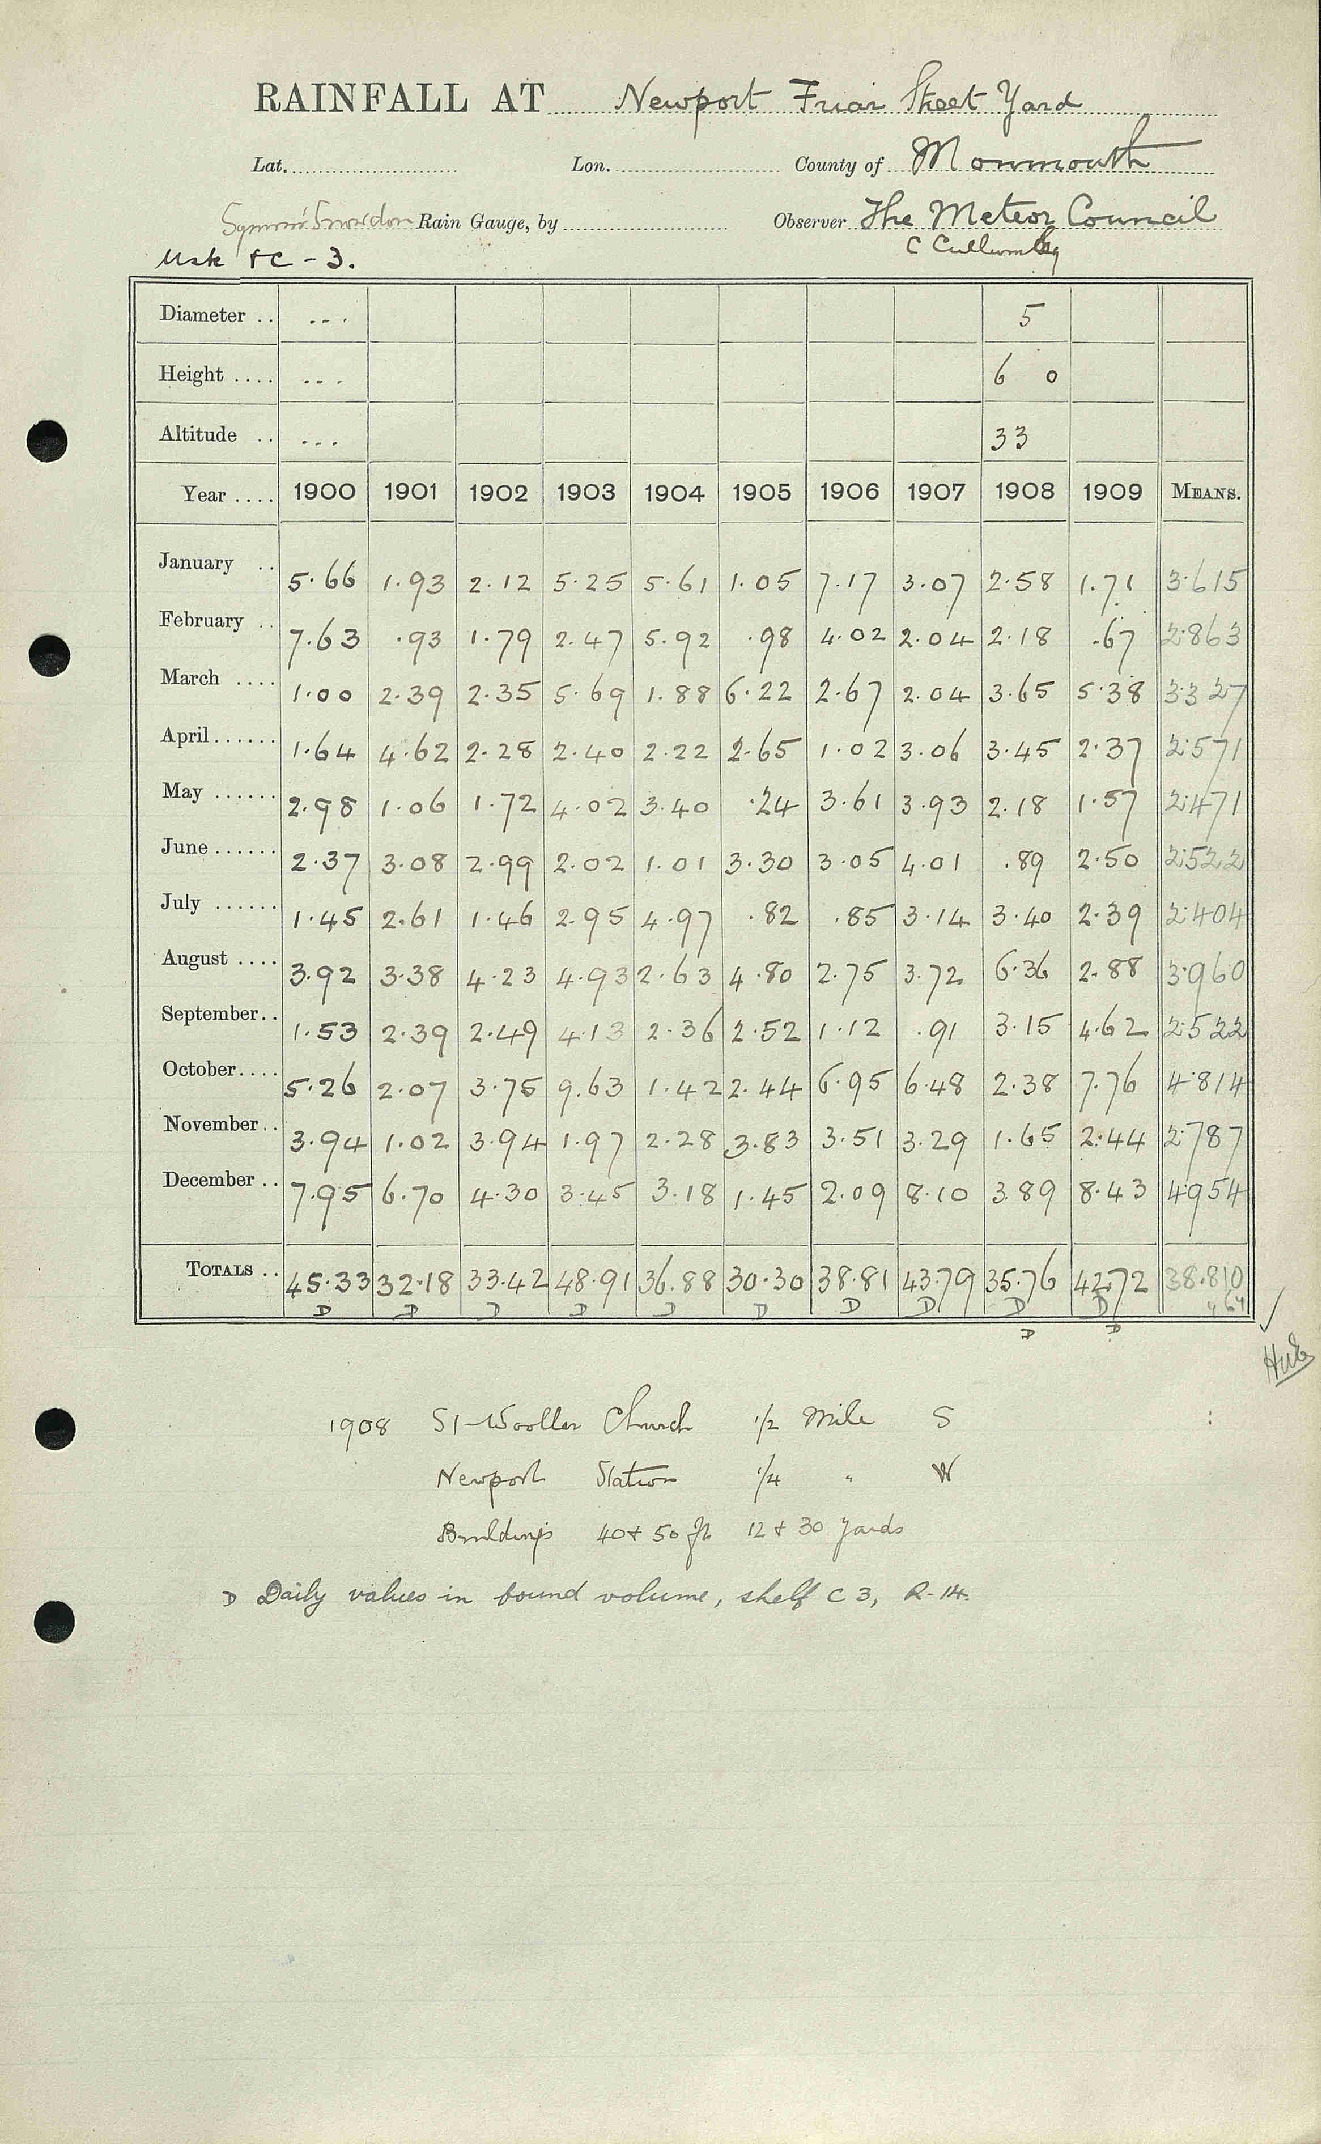 RAINFALL AT Newport Friar Street Yard
Lat. Lon. County of Monmouth
Snowdon Rain Gauge, by Observer The Meteor Council
Usk &c - 3. C Cullum Esq
Diameter .. --. 5
Height .... --- 6 0
Altitude .. --- 33
Year .... 1900 1901 1902 1903 1904 1905 1906 1907 1908 1909 MEANS.
January .. 5.66 1.93 2.12 5.25 5.61 1.05 7.17 3.07 2.58 1.71 3.615
February .. 7.63 .93 1.79 2.47 5.92 .98 4.02 2.04 2.18 .67 2.863
March .... 1.00 2.39 2.35 5.69 1.88 6.22 2.67 2.04 3.65 5.38 3.327
April...... 1.64 4.62 2.28 2.40 2.22 2.65 1.02 3.06 3.45 2.37 2.571
May ...... 2.98 1.06 1.72 4.02 3.40 .24 3.61 3.93 2.18 1.57 2.471
June...... 2.37 3.08 2.99 2.02 1.01 3.30 3.05 4.01 .89 2.50 2.522
July ...... 1.45 2.61 1.46 2.95 4.97 .82 .85 3.14 3.40 2.39 2.404
August .... 3.92 3.38 4.23 4.93 2.63 4.80 2.75 3.72 6.36 2.88 3.960
September.. 1.53 2.39 2.49 4.13 2.36 2.52 1.12 .91 3.15 4.62 2.522
October.... 5.26 2.07 3.75 9.63 1.42 2.44 6.95 6.48 2.38 7.76 4.814
November.. 3.94 1.02 3.94 1.97 2.28 3.83 3.51 3.29 1.65 2.44 2.787
December .. 7.95 6.70 4.30 3.45 3.18 1.45 2.09 8.10 3.89 8.43 4.954
TOTALS .. 45.33 32.18 33.42 48.91 36.88 30.30 38.81 43.79 35.76 42.72 38.810
D D D D D D D D D D
D D
1908 St Wooller Church 1/2 Mile S
Newport Station 1/4 " W
Buildings 40 & 50 ft 12 & 30 yards
D Daily values in bound volume, shelf C 3, R-14.